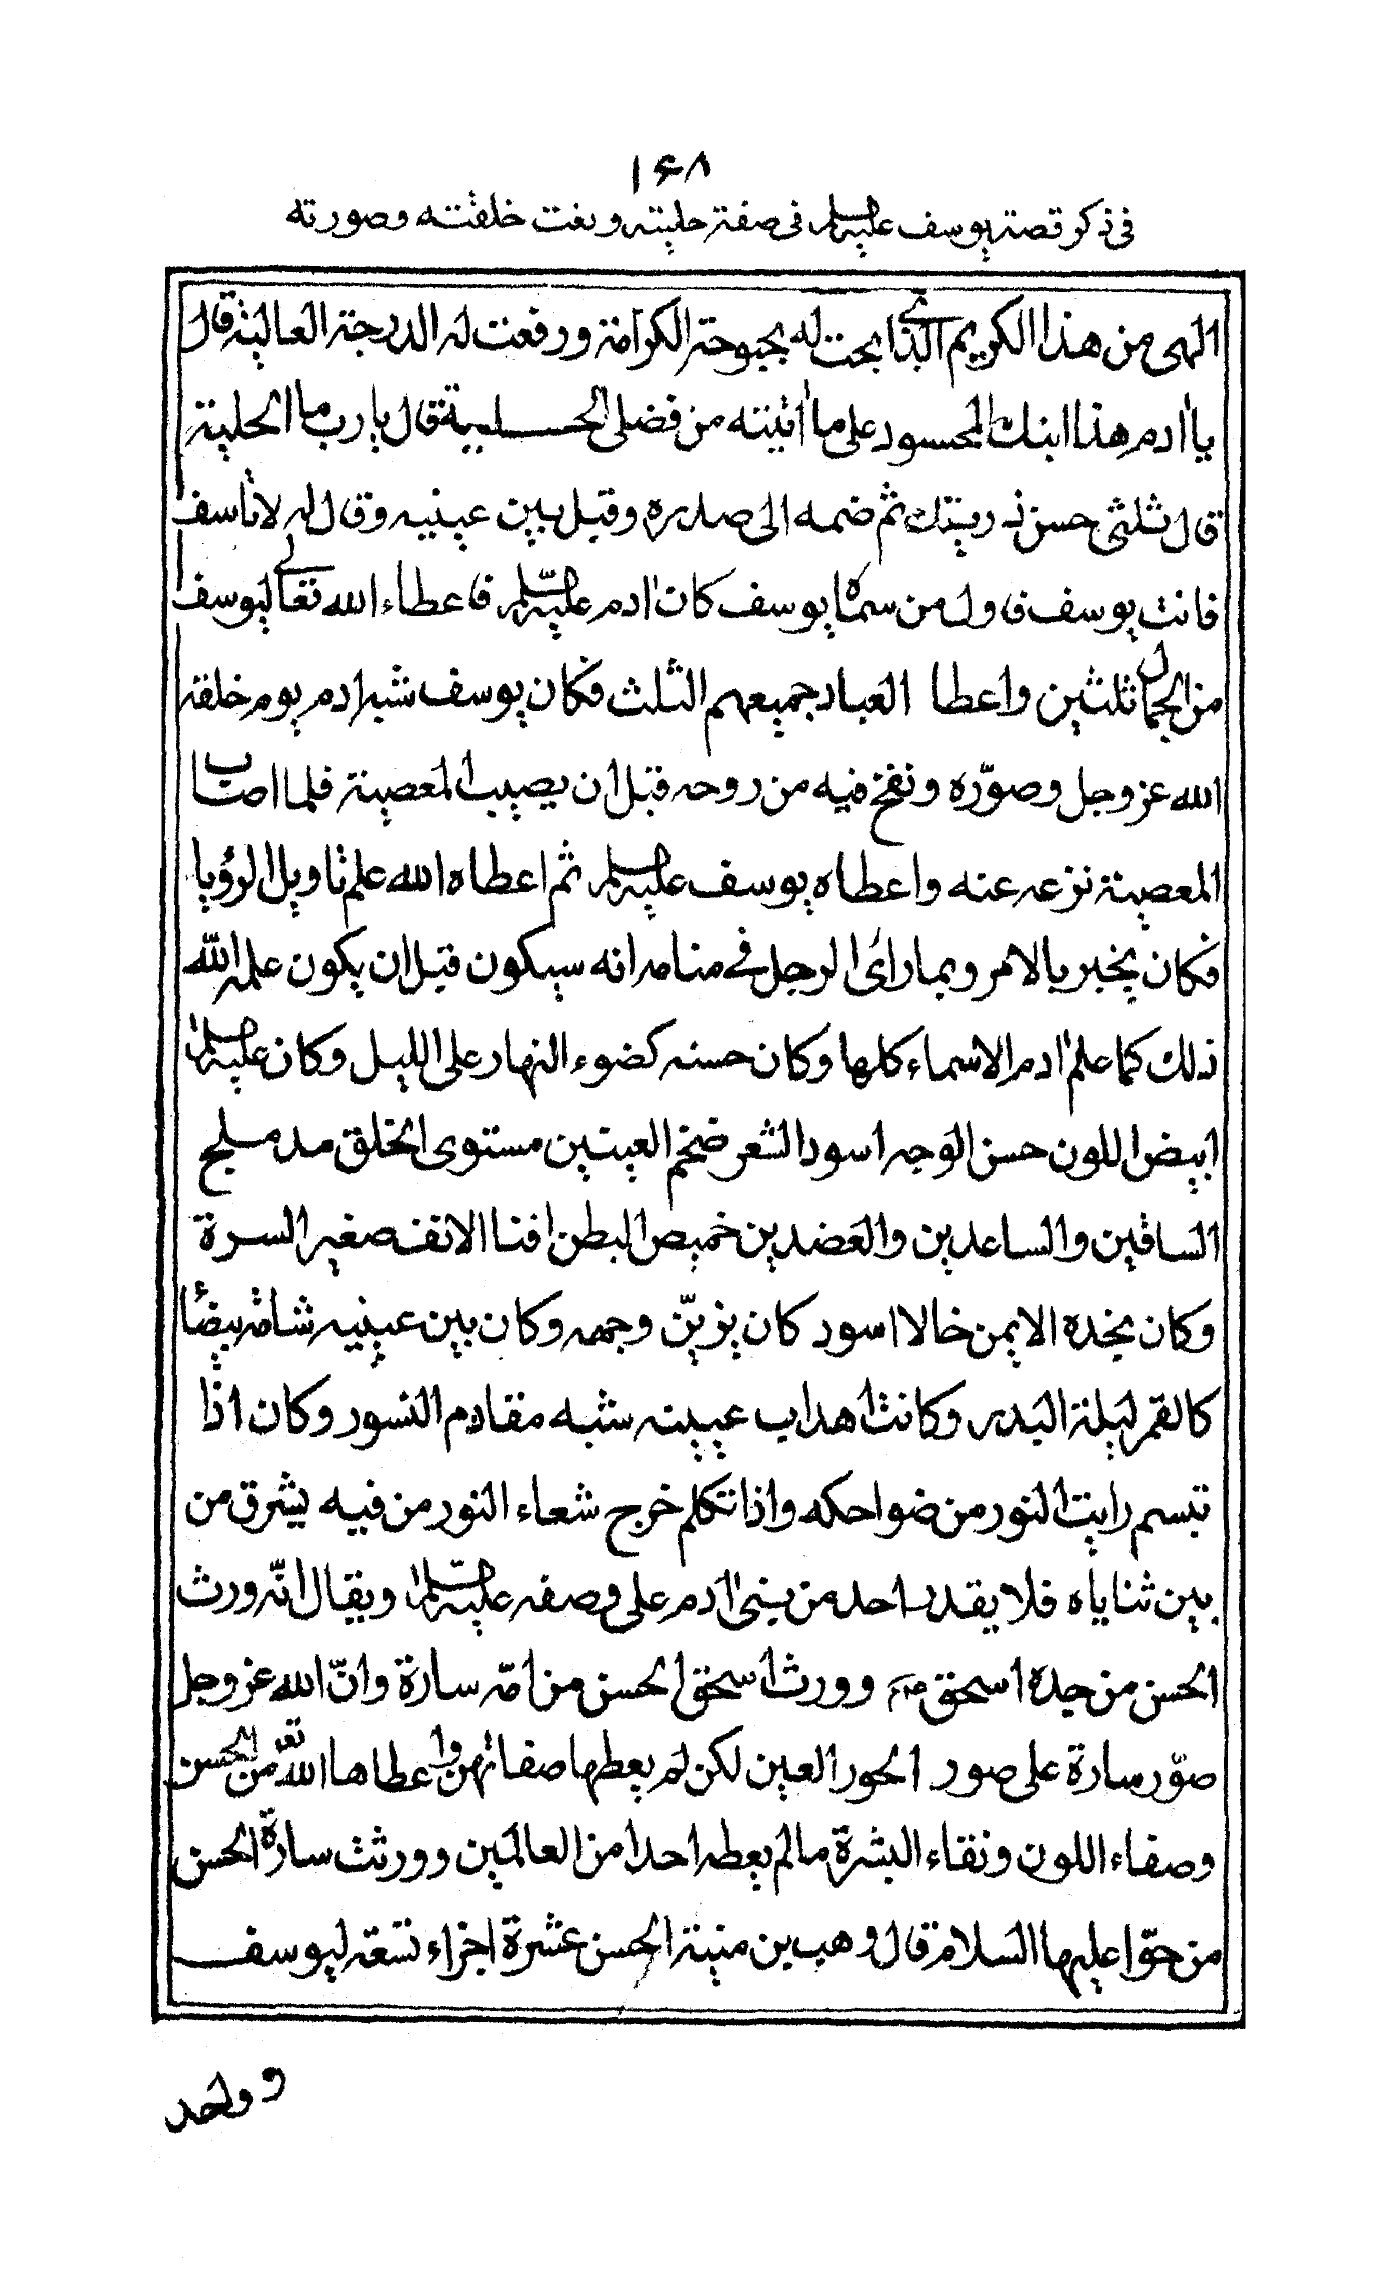 ١۶٨
في ذكر قصة يوسف عليه السلم في صفة حليته ونعت خلقته وصورته
الهي من هذا الكريم الذي ابحت له بحبوحة الكرامة ورفعت له الدرجة العالية قال
يا ادم هذا ابنك المحسود على ما اتيته من فضلي الحسلية قال يا رب ما الحلية
قال ثلثي حسن ذريتك ثم ضمه الى صدره وقبل بين عينيه وقال له لا تاسف
فانت يوسف فاول من سماه يوسف كان ادم عليه السلم فاعطاء الله تعالى ليوسف
من الجمال ثلثين واعطا العباد جميعهم الثلث فكان يوسف شبه ادم يوم خلقه
الله عز وجل وصوّره ونفخ فيه من روحه قبل ان يصيب المعصية فلما اصاب
المعصية نزعه عنه واعطاه يوسف عليه السلم ثم اعطاه الله علم تاويل الرؤيا
فكان يخبر بالامر وبما راى الرجل في منامه انه سيكون قبل ان يكون علمه الله
ذلك كما علم ادم الاسماء كلها وكان حسنه كضوء النهار على الليل وكان عليه السلم
ابيض اللون حسن الوجه اسود الشعر ضخم العينين مستوى الخلق مدملج
الساقين والساعدين والعضدين خميص البطن اقنا الانف صغير السرة
وكان بخده الايمن خالا اسود كان يزيّن وجهه وكان بين عينيه شامة بيضا
كالقمر ليلة البدر وكانت اهداب عينيه شبه مقادم النسور وكان اذا
تبسم رايت النور من ضواحكه واذا تكلم خرج شعاء النور من فيه يشرق من
بين ثناياه فلا يقدر احد من بني ادم على وصفه عليه السلم ويقال انّه ورث
الحسن من جده اسحق وورث اسحق الحسن من امّه سارة وانّ الله عز وجل
صوّر سارة على صور الحور العين لكن لم يعطها صفاتهن واعطاها الله تع من الحسن
وصفاء اللون ونقاء البشرة ما لم يعطه احدا من العالمين وورثت سارة الحسن
من حوّا عليها السلام قال وهب بن منبه الحسن عشرة اجزاء تسعة ليوسف
وواحد